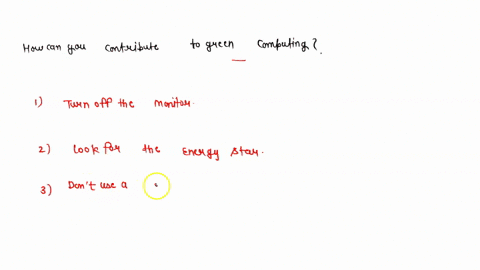 How can you contribute to green computing?.
1) Turn off the monitor.
2) Look for the Energy star.
3) Don't use a